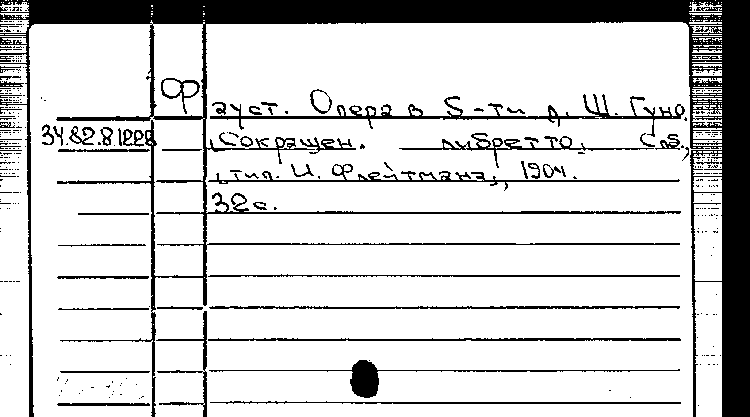 Фауст. Опера в 5-ти д. Ш. Гуно.
34.82.8.1228 [Сокращен. либретто]. Спб.,
[тип. И. Флейтмана], 1904.
32с.